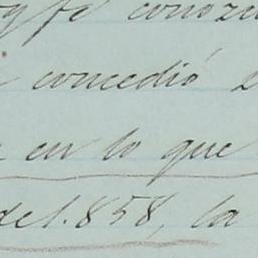 y fe conoz
concedió
en lo que
del.858, la